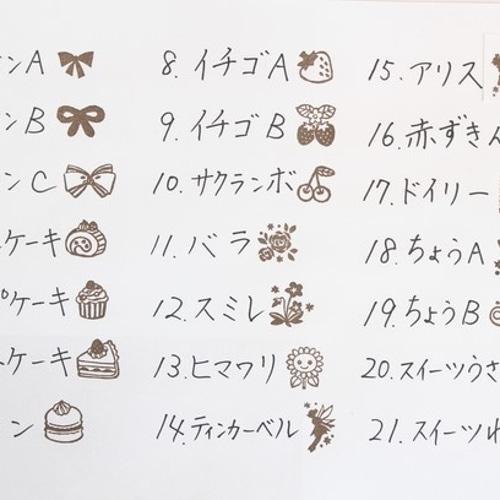 ンA
ンB
ンC
ケーキ
プケーキ
ケーキ
ン
8. イチゴA
9. イチゴB
10. サクランボ
11. バラ
12. スミレ
13. ヒマワリ
14. ティンカーベル
15. アリス
16. 赤ずきん
17. ドイリー
18. ちょうA
19. ちょうB
20. スイーツうさ
21. スイーツ